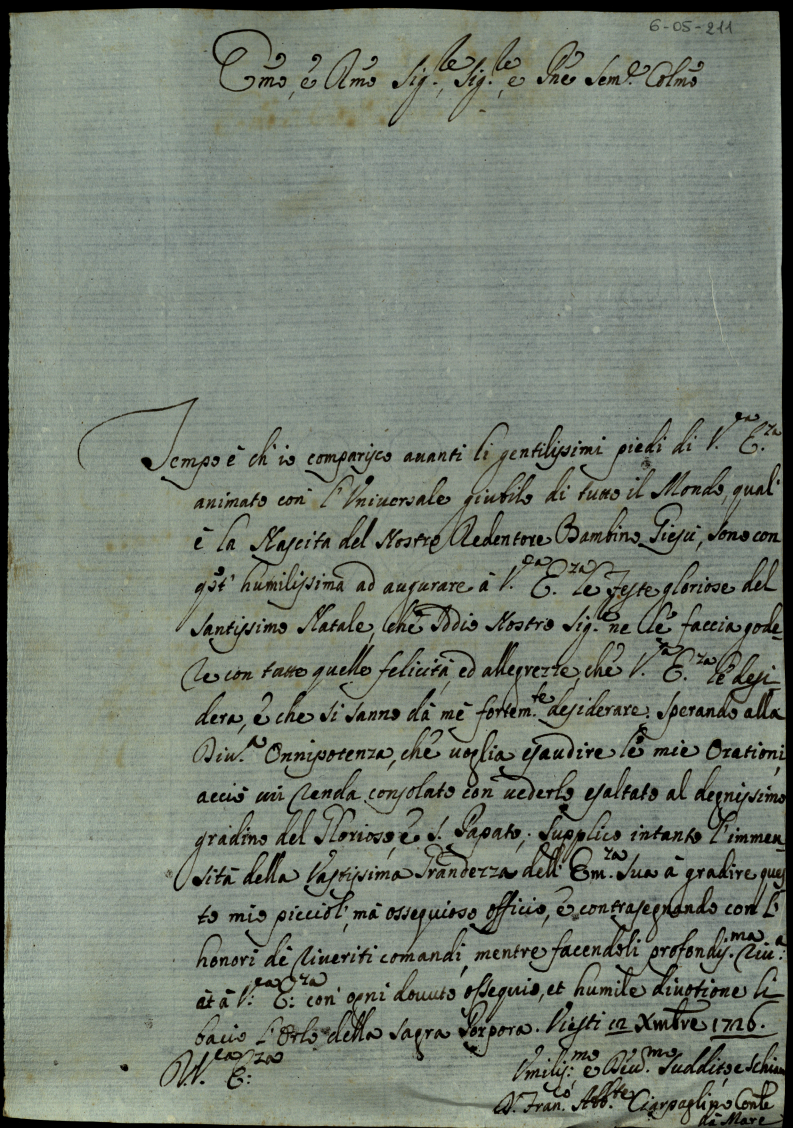 6-05-211
Emo, è Rmo Sig.re, Sig.re, e Pne Sem.e Colmo
Tempo è ch'io comparisco auanti li gentilissimi piedi di V.ra E.za
animato con l'Vniuersale giubilo di tutto il Mondo, qual'
è la Nascita del Nostro Redentore Bambino Giesù, sono con
qst' humilissima ad augurare à V.ra E.za le feste gloriose del
Santissimo Natale, che Iddio Nostro Sig.re ne le faccia gode-
re con tutte quelle felicità, ed allegrezze, che V.ra E.za le desi
dera, è che si sanno dà mè fortem.te desiderare: sperando alla
Diu.a Onnipotenza, chè uoglia esaudire le mie Orationi,
acciò mi renda consolato con uederlo esaltato al degnissimo
gradino del Glorioso, è S. Papato; Supplico intanto l'immen
sità della Vastissima Grandezza dell' Em.za Sua à gradire ques
to mio picciol', mà ossequioso officio, è contrasegnando con l'
honori dè riueriti comandi, mentre facendoli profondis.ma riu.a
èt à V.ra E.za con' ogni douuto ossequio, et humile diuotione li
bacio l'Orlo della Sagra Porpora. Viesti 12 Xmbre 1726.
V.ra E.za
Vmilis.mo e Deu.mo Suddito, e schiauo
D. Fran.co Abb.te Ciarpaglino Conte
dà Mare